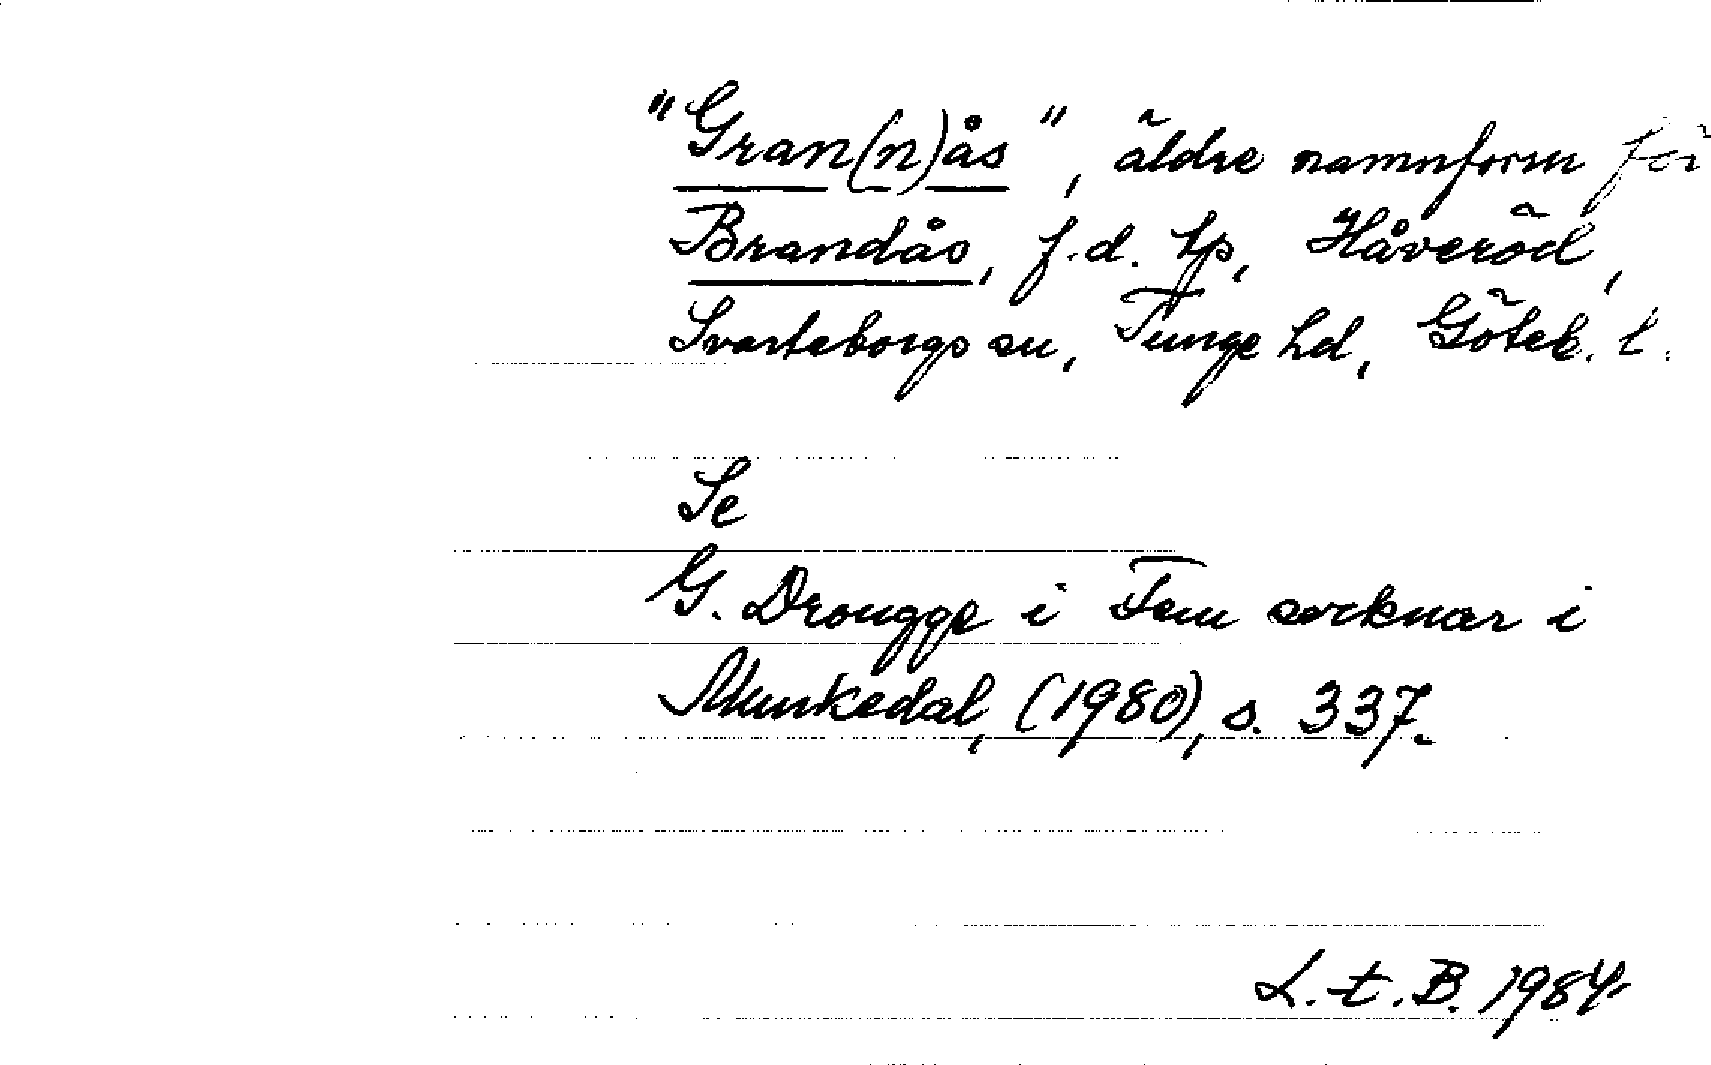 "Gran(n)ås", äldre namnform för
Brandås, f.d. tp, Håveröd,
Svarteborgs sn, Tunge hd, Göteb. l.
Se
G. Drougge i Fem socknar i
Munkedal, (1980), s. 337.
L. t. B. 1984